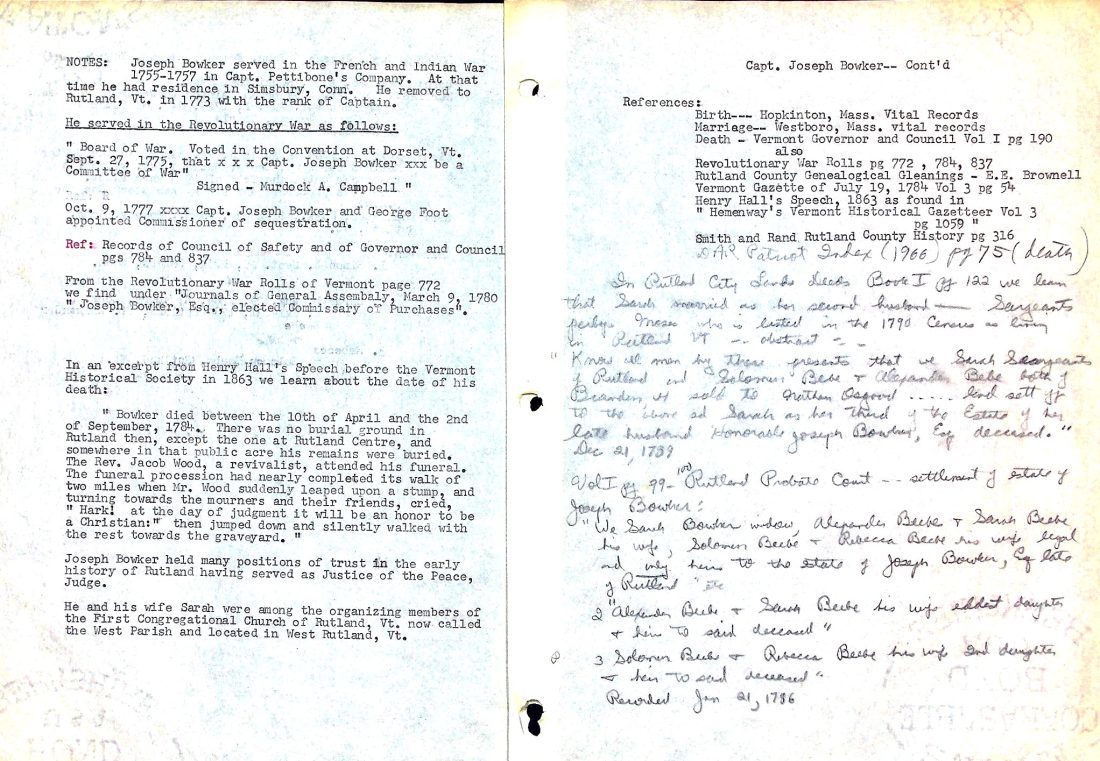 NOTES: Joseph Bowker served in the French and Indian War
1755-1757 in Capt. Pettibone's Company. At that
time he had residence in Simsbury, Conn. He removed to
Rutland, Vt. in 1773 with the rank of Captain.
He served in the Revolutionary War as follows:
" Board of War. Voted in the Convention at Dorset, Vt.
Sept. 27, 1775, that x x x Capt. Joseph Bowker xxx be a
Committee of War"
Signed - Murdock A. Campbell "
Oct. 9, 1777 xxxx Capt. Joseph Bowker and George Foot
appointed Commissioner of sequestration.
Ref: Records of Council of Safety and of Governor and Council
pgs 784 and 837
From the Revolutionary War Rolls of Vermont page 772
we find under "Journals of General Assembaly, March 9, 1780
" Joseph Bowker, Esq., elected Commissary of Purchases".
In an excerpt from Henry Hall's Speech before the Vermont
Historical Society in 1863 we learn about the date of his
death:
" Bowker died between the 10th of April and the 2nd
of September, 1784. There was no burial ground in
Rutland then, except the one at Rutland Centre, and
somewhere in that public acre his remains were buried.
The Rev. Jacob Wood, a revivalist, attended his funeral.
The funeral procession had nearly completed its walk of
two miles when Mr. Wood suddenly leaped upon a stump, and
turning towards the mourners and their friends, cried,
" Hark! at the day of judgment it will be an honor to be
a Christian:" then jumped down and silently walked with
the rest towards the graveyard. "
Joseph Bowker held many positions of trust in the early
history of Rutland having served as Justice of the Peace,
Judge.
He and his wife Sarah were among the organizing members of
the First Congregational Church of Rutland, Vt. now called
the West Parish and located in West Rutland, Vt.
Capt. Joseph Bowker-- Cont'd
References:
Birth--- Hopkinton, Mass. Vital Records
Marriage-- Westboro, Mass. vital records
Death - Vermont Governor and Council Vol I pg 190
also
Revolutionary War Rolls pg 772 , 784, 837
Rutland County Genealogical Gleanings - E.E. Brownell
Vermont Gazette of July 19, 1784 Vol 3 pg 54
Henry Hall's Speech, 1863 as found in
" Hemenway's Vermont Historical Gazetteer Vol 3
pg 1059 "
Smith and Rand Rutland County History pg 316
D.A.R. Patriot Index (1966) pg 75 (death)
In Rutland City Lands Deeds Book I pg 122 we learn
that Sarah married as her second husband — Sargeants
perhaps Moses who is listed in the 1790 Census as living
in Rutland Vt -- abstract - -
"Know all men by these presents that we Sarah Seargeants
of Rutland and Solomon Bebe & Alexander Bebe both of
Brandon sold to Nathan Osgood ..... land sett off
to the above sd Sarah as her third of the Estate of her
late husband Honorable Joseph Bowker, Esq deceased."
Dec 21, 1789
Vol I pg 99-100 Rutland Probate Court -- settlement of estate of
Joseph Bowker:
"We Sarah Bowker widow, Alexander Beebe & Sarah Beebe
his wife, Solomon Beebe & Rebecca Beebe his wife legal
and only heirs to the estate of Joseph Bowker, Esq late
of Rutland" etc
2 "Alexander Beebe & Sarah Beebe his wife eldest daughter
& heir to said deceased"
3 Solomon Beebe & Rebecca Beebe his wife 2nd daughter
& heir to said deceased"
Recorded Jan 21, 1786